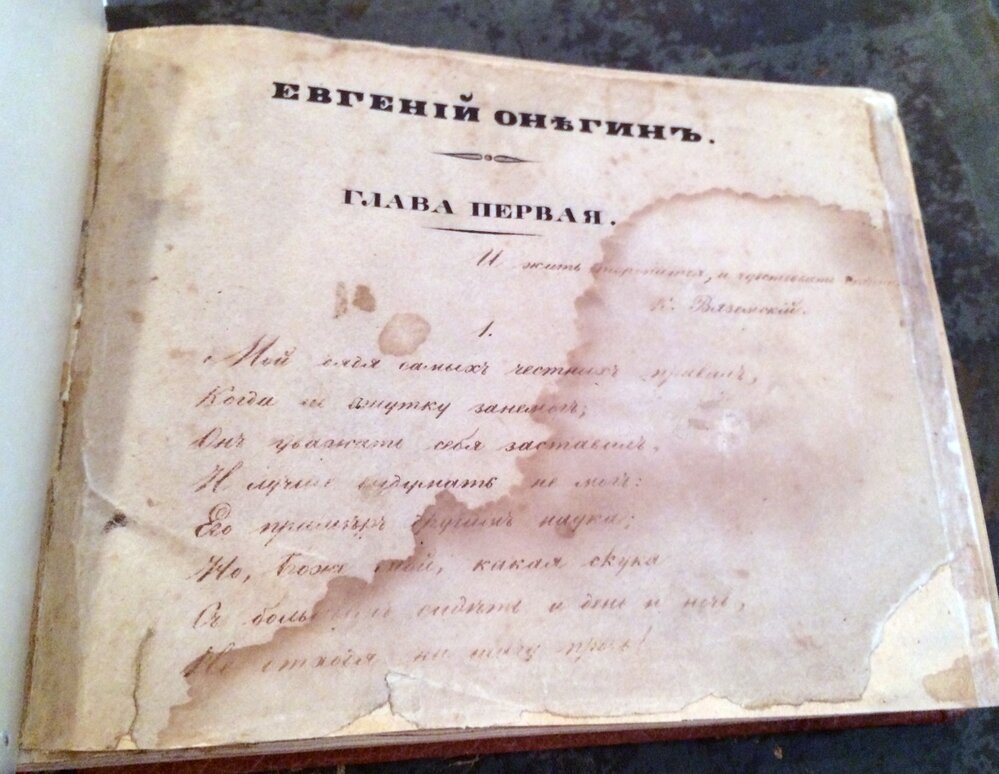 ЕВГЕНІЙ ОНѢГИНЪ.
ГЛАВА ПЕРВАЯ.
И жить торопится, и чувствовать
К. Вяземскій.
1.
Мой дядя самыхъ честныхъ правилъ,
Когда не въ шутку занемогъ,
Онъ уважать себя заставилъ,
И лучше выдумать не могъ:
Его примѣръ другимъ наука;
Но, Боже мой, какая скука
Съ больнымъ сидѣть и день и ночь,
Не отходя ни шагу прочь!